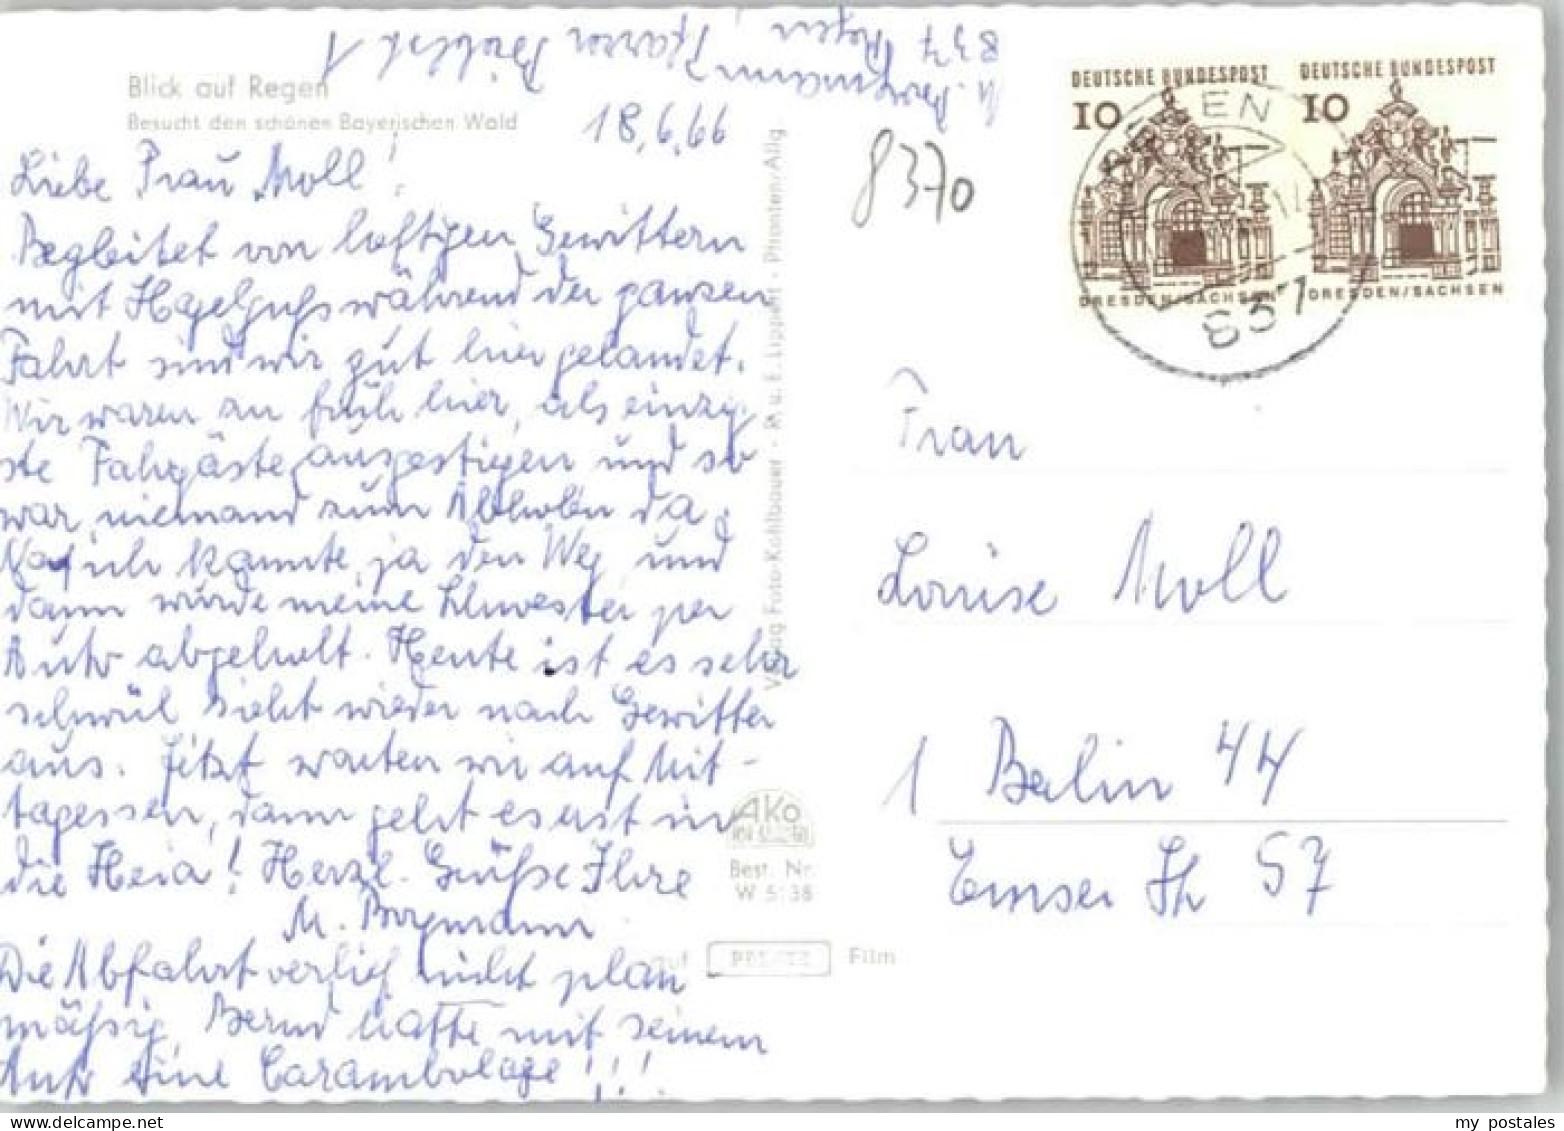 Blick auf Regen
Besucht den schönen Bayerischen Wald
18.6.66
Liebe Frau Moll!
Begleitet von heftigen Gewittern
mit Hagelguß während der ganzen
Fahrt sind wir gut hier gelandet.
Wir waren zu früh hier, als einzig-
ste Fahrgäste ausgestiegen und so
war niemand zum Abholen da.
Na, ich kannte ja den Weg und
dann wurde meine Schwester per
Auto abgeholt. Heute ist es sehr
schwül sieht wieder nach Gewitter
aus. Jetzt warten wir auf Mit-
tagessen, dann geht es erst in
die Heia! Herzl. Grüße Ihre
M. Borgmann
Die Abfahrt verlief nicht plan-
mäßig, Bernd hatte mit seinem
Auto eine Carambolage!!!
M. Borgmann
837 Regen, Pfarrer
Verlag Foto-Kohlbauer - R. u. E. Lippert - Pfronten/Allg.
AKo
Best. Nr.
W 5138
auf
Film
8370
DEUTSCHE BUNDESPOST
10
DRESDEN/SACHSEN
DEUTSCHE BUNDESPOST
10
DRESDEN/SACHSEN
REGEN
837
Frau
Louise Moll
1 Berlin 44
Emser Str 57
my postales